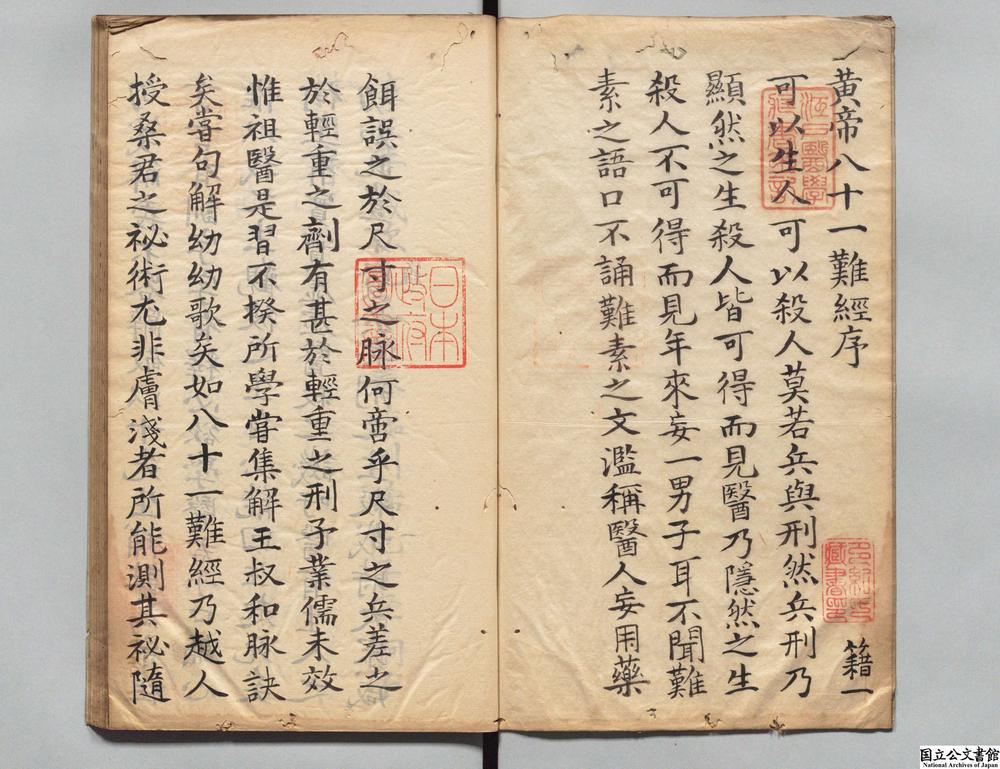 黄帝八十一難經序
籍一
可以生人可以殺人莫若兵與刑然兵刑乃
顯然之生殺人皆可得而見醫乃隱然之生
殺人不可得而見年來妄一男子耳不聞難
素之語口不誦難素之文濫稱醫人妄用藥
餌誤之於尺寸之脉何啻乎尺寸之兵差之
於輕重之劑有甚於輕重之刑予業儒未效
惟祖醫是習不揆所學嘗集解王叔和脉訣
矣嘗句解幼幼歌矣如八十一難經乃越人
授桑君之祕術尤非膚淺者所能測其祕隨
江戸醫學
藏書之記
日本
政府
圖書
國立公文書館
National Archives of Japan